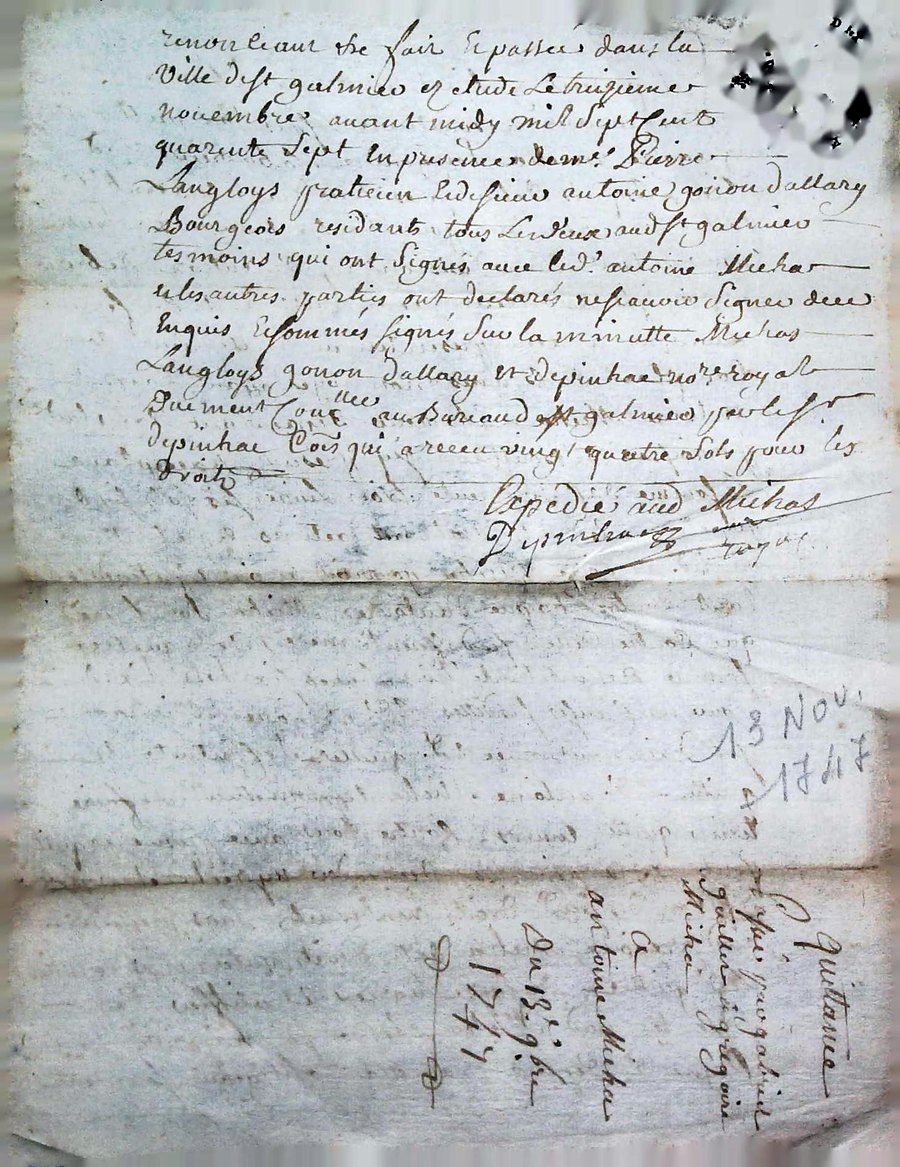 renonceant &c fait et passé dans la
Ville de st galmier & etude Le treizieme
novembre avant midy mil Sept Cent
quarente Sept En presence de me. Pierre
Langloys praticien Et de sieur antoine gonon dallary
Bourgeois residants tous Les deux aud st galmier
tesmoins qui ont Signés avec led. antoine Michas
et les autres parties ont declarés ne sçavoir Signer de ce
Enquis Et sommés signés Sur la minutte Michas
Langloys gonon dallary et depinhac nore royal
Duement Conllee au Bureau dest galmier par le sr
depinhac Cois qui a receu vingt quatre Sols pour les
droits
Expedié aud Michas
Depinhac
13 Nov.
1747
Quittance
passée par gabriel
guillet & gregoire
Micha
a
antoine Micha
Du 13e 9bre
1747